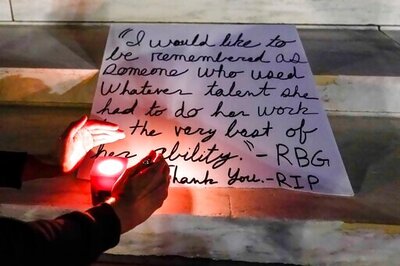 "I would like to
be remembered as
someone who used
whatever talent she
had to do her work
to the very best of
her ability."-RBG
Thank You.-RIP